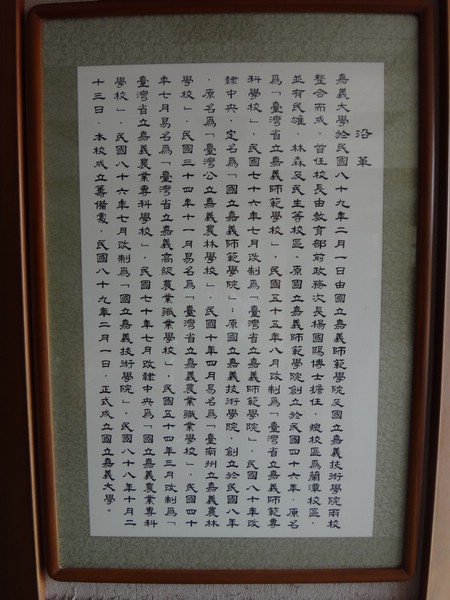 沿革
嘉義大學於民國八十九年二月一日由國立嘉義師範學院及國立嘉義技術學院兩校
整合而成，首任校長由教育部前政務次長楊國賜博士擔任，總校區為蘭潭校區，
並有民雄、林森及民生等校區。原國立嘉義師範學院創立於民國四十六年，原名
為「臺灣省立嘉義師範學校」，民國五十五年八月改制為「臺灣省立嘉義師範專
科學校」，民國七十六年七月改制為「臺灣省立嘉義師範學院」，民國八十年改
隸中央，定名為「國立嘉義師範學院」；原國立嘉義技術學院，創立於民國八年
，原名為「臺灣公立嘉義農林學校」，民國十年四月易名為「臺南州立嘉義農林
學校」，民國三十四年十一月易名為「臺灣省立嘉義農業職業學校」，民國四十
年七月易名為「臺灣省立嘉義高級農業職業學校」，民國五十四年三月改制為「
臺灣省立嘉義農業專科學校」，民國七十年七月改隸中央為「國立嘉義農業專科
學校」，民國八十六年七月改制為「國立嘉義技術學院」，民國八十八年十月二
十三日，本校成立籌備處，民國八十九年二月一日，正式成立國立嘉義大學。